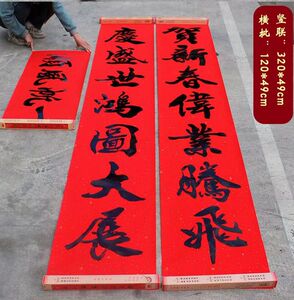 竖联：320*49cm
横批：120*49cm
賀新春偉業騰飛
慶盛世鴻圖大展